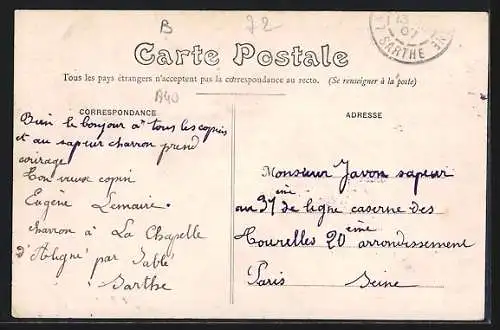 B 72
Carte Postale
Tous les pays étrangers n'acceptent pas la correspondance au recto. (Se renseigner à la poste)
A40
CORRESPONDANCE
Bien le bonjour a tous les copins
et au sapeur charron prend
courage
Ton vieux copin
Eugène Lemaire
charron à La Chapelle
d'Aligné par Sablé
Sarthe
ADRESSE
Monsieur Javon sapeur
au 37 ième de ligne caserne des
Tourelles 20 ième arrondissement
Paris Seine
13
07
SARTHE